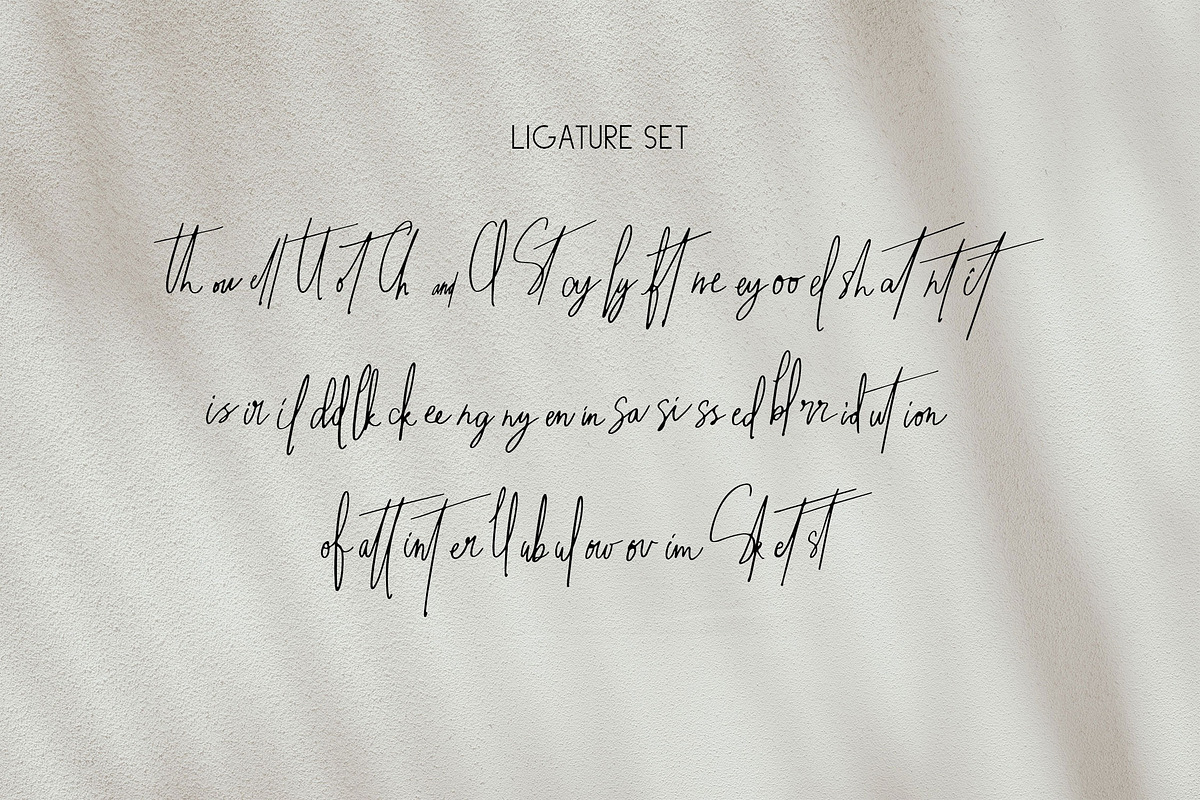 LIGATURE SET
th ou ell tt ot Ch and Cl St oy ly ft re ey oo el sh at nt it
is ir il dd lk ck ee ng ny en in sa si ss ed bl rr id ut ion
of att int er ll ub ul ow ov im Sk et st